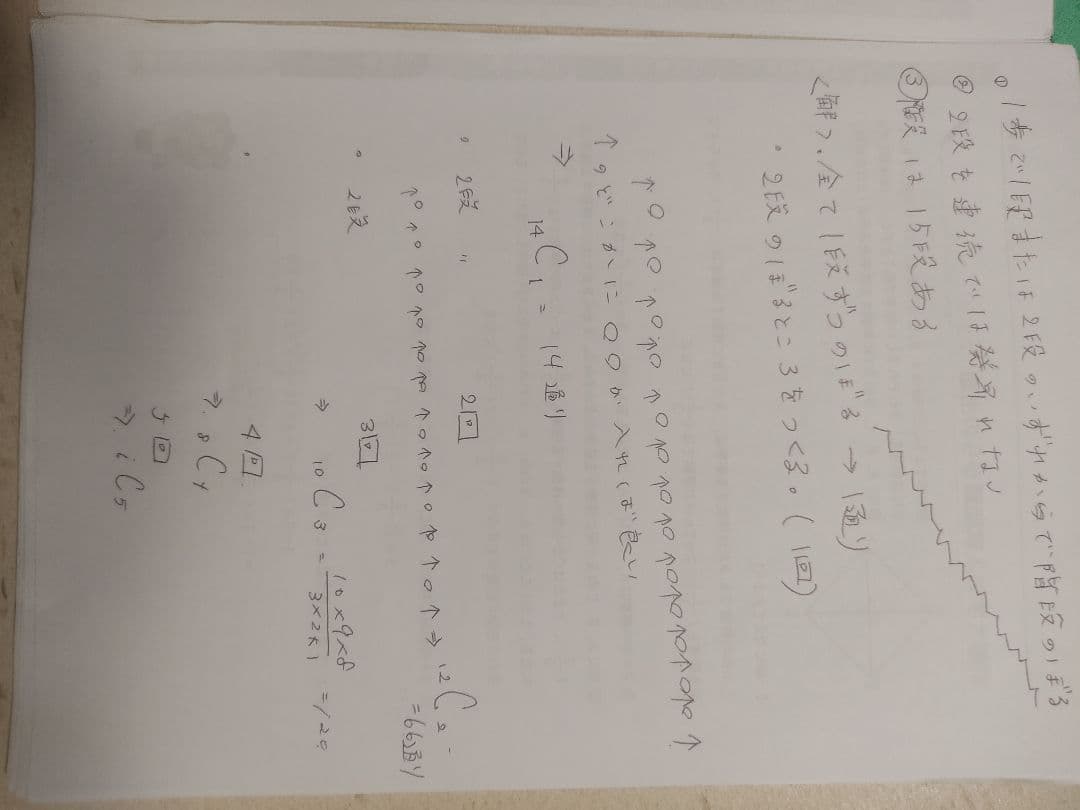 ① 1歩で1段または2段のいずれかで階段のぼる
② 2段を連続では発昇れない
③ 階段は15段ある
<解>・全て1段ずつのぼる → 1通り
・2段のぼるところをつくる。(1回)
↑○↑○↑○↑○↑○↑○↑○↑○↑○↑○↑○↑○↑○↑
↑のどこかに○○が入ればよい
⇒ ₁₄C₁ = 14通り
・2段 〃 2回
↑○↑○↑○↑○↑○↑○↑○↑○↑○↑○↑○↑ ⇒ ₁₂C₂
=66通り
・2段 3回
⇒ ₁₀C₃ = 10×9×8 / 3×2×1 = 120
・ 4回
⇒ ₈C₄
5回
⇒ C₅